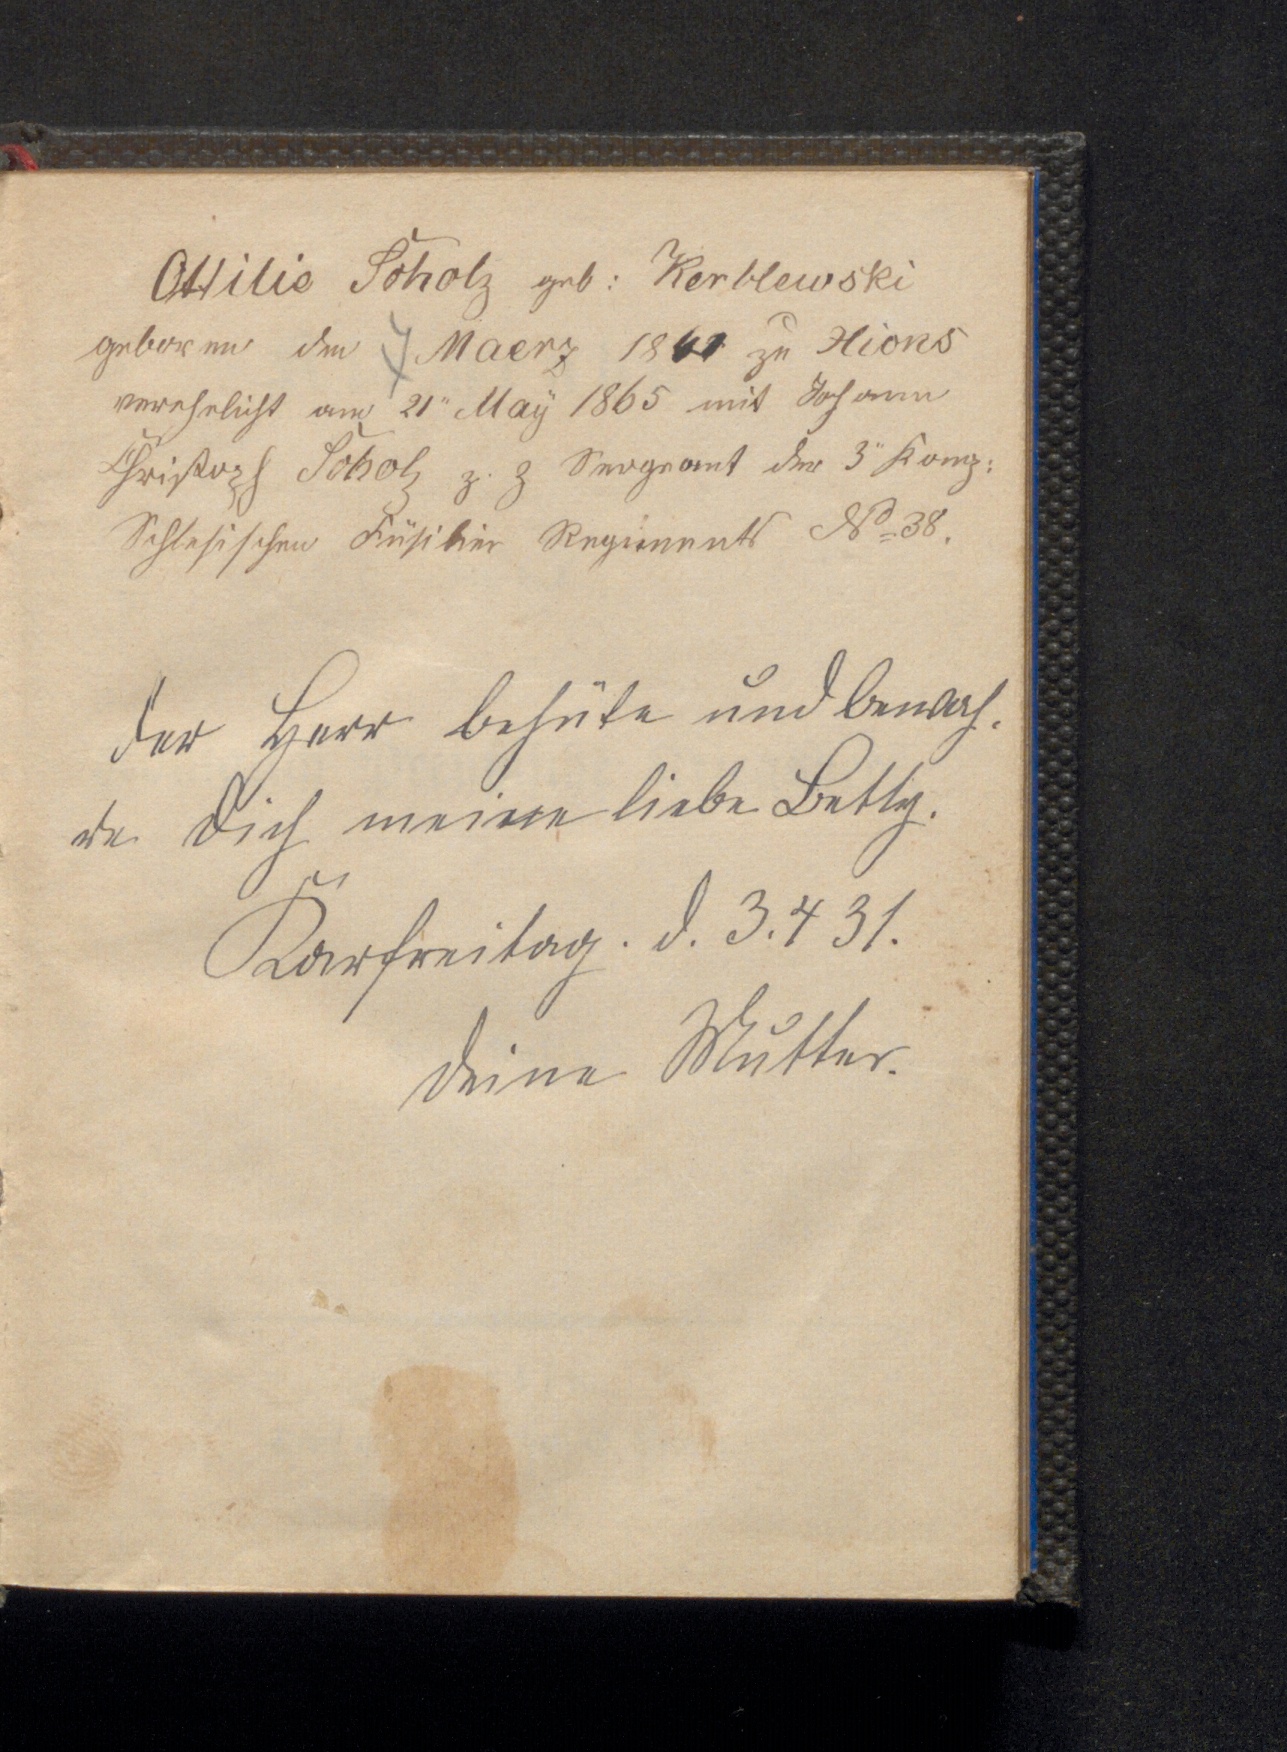 Ottilie Scholz geb: Kerblewski
geboren den 7 Maerz 1841 zu Xions
verehelicht am 21" Maÿ 1865 mit Johann
Christoph Scholz z. Z Sergeant der 3" Komp:
Schlesischen Füsilier Regiments No 38.
Der Herr behüte und bewah-
re Dich meine liebe Betty.
Karfreitag. d. 3.4 31.
Deine Mutter.